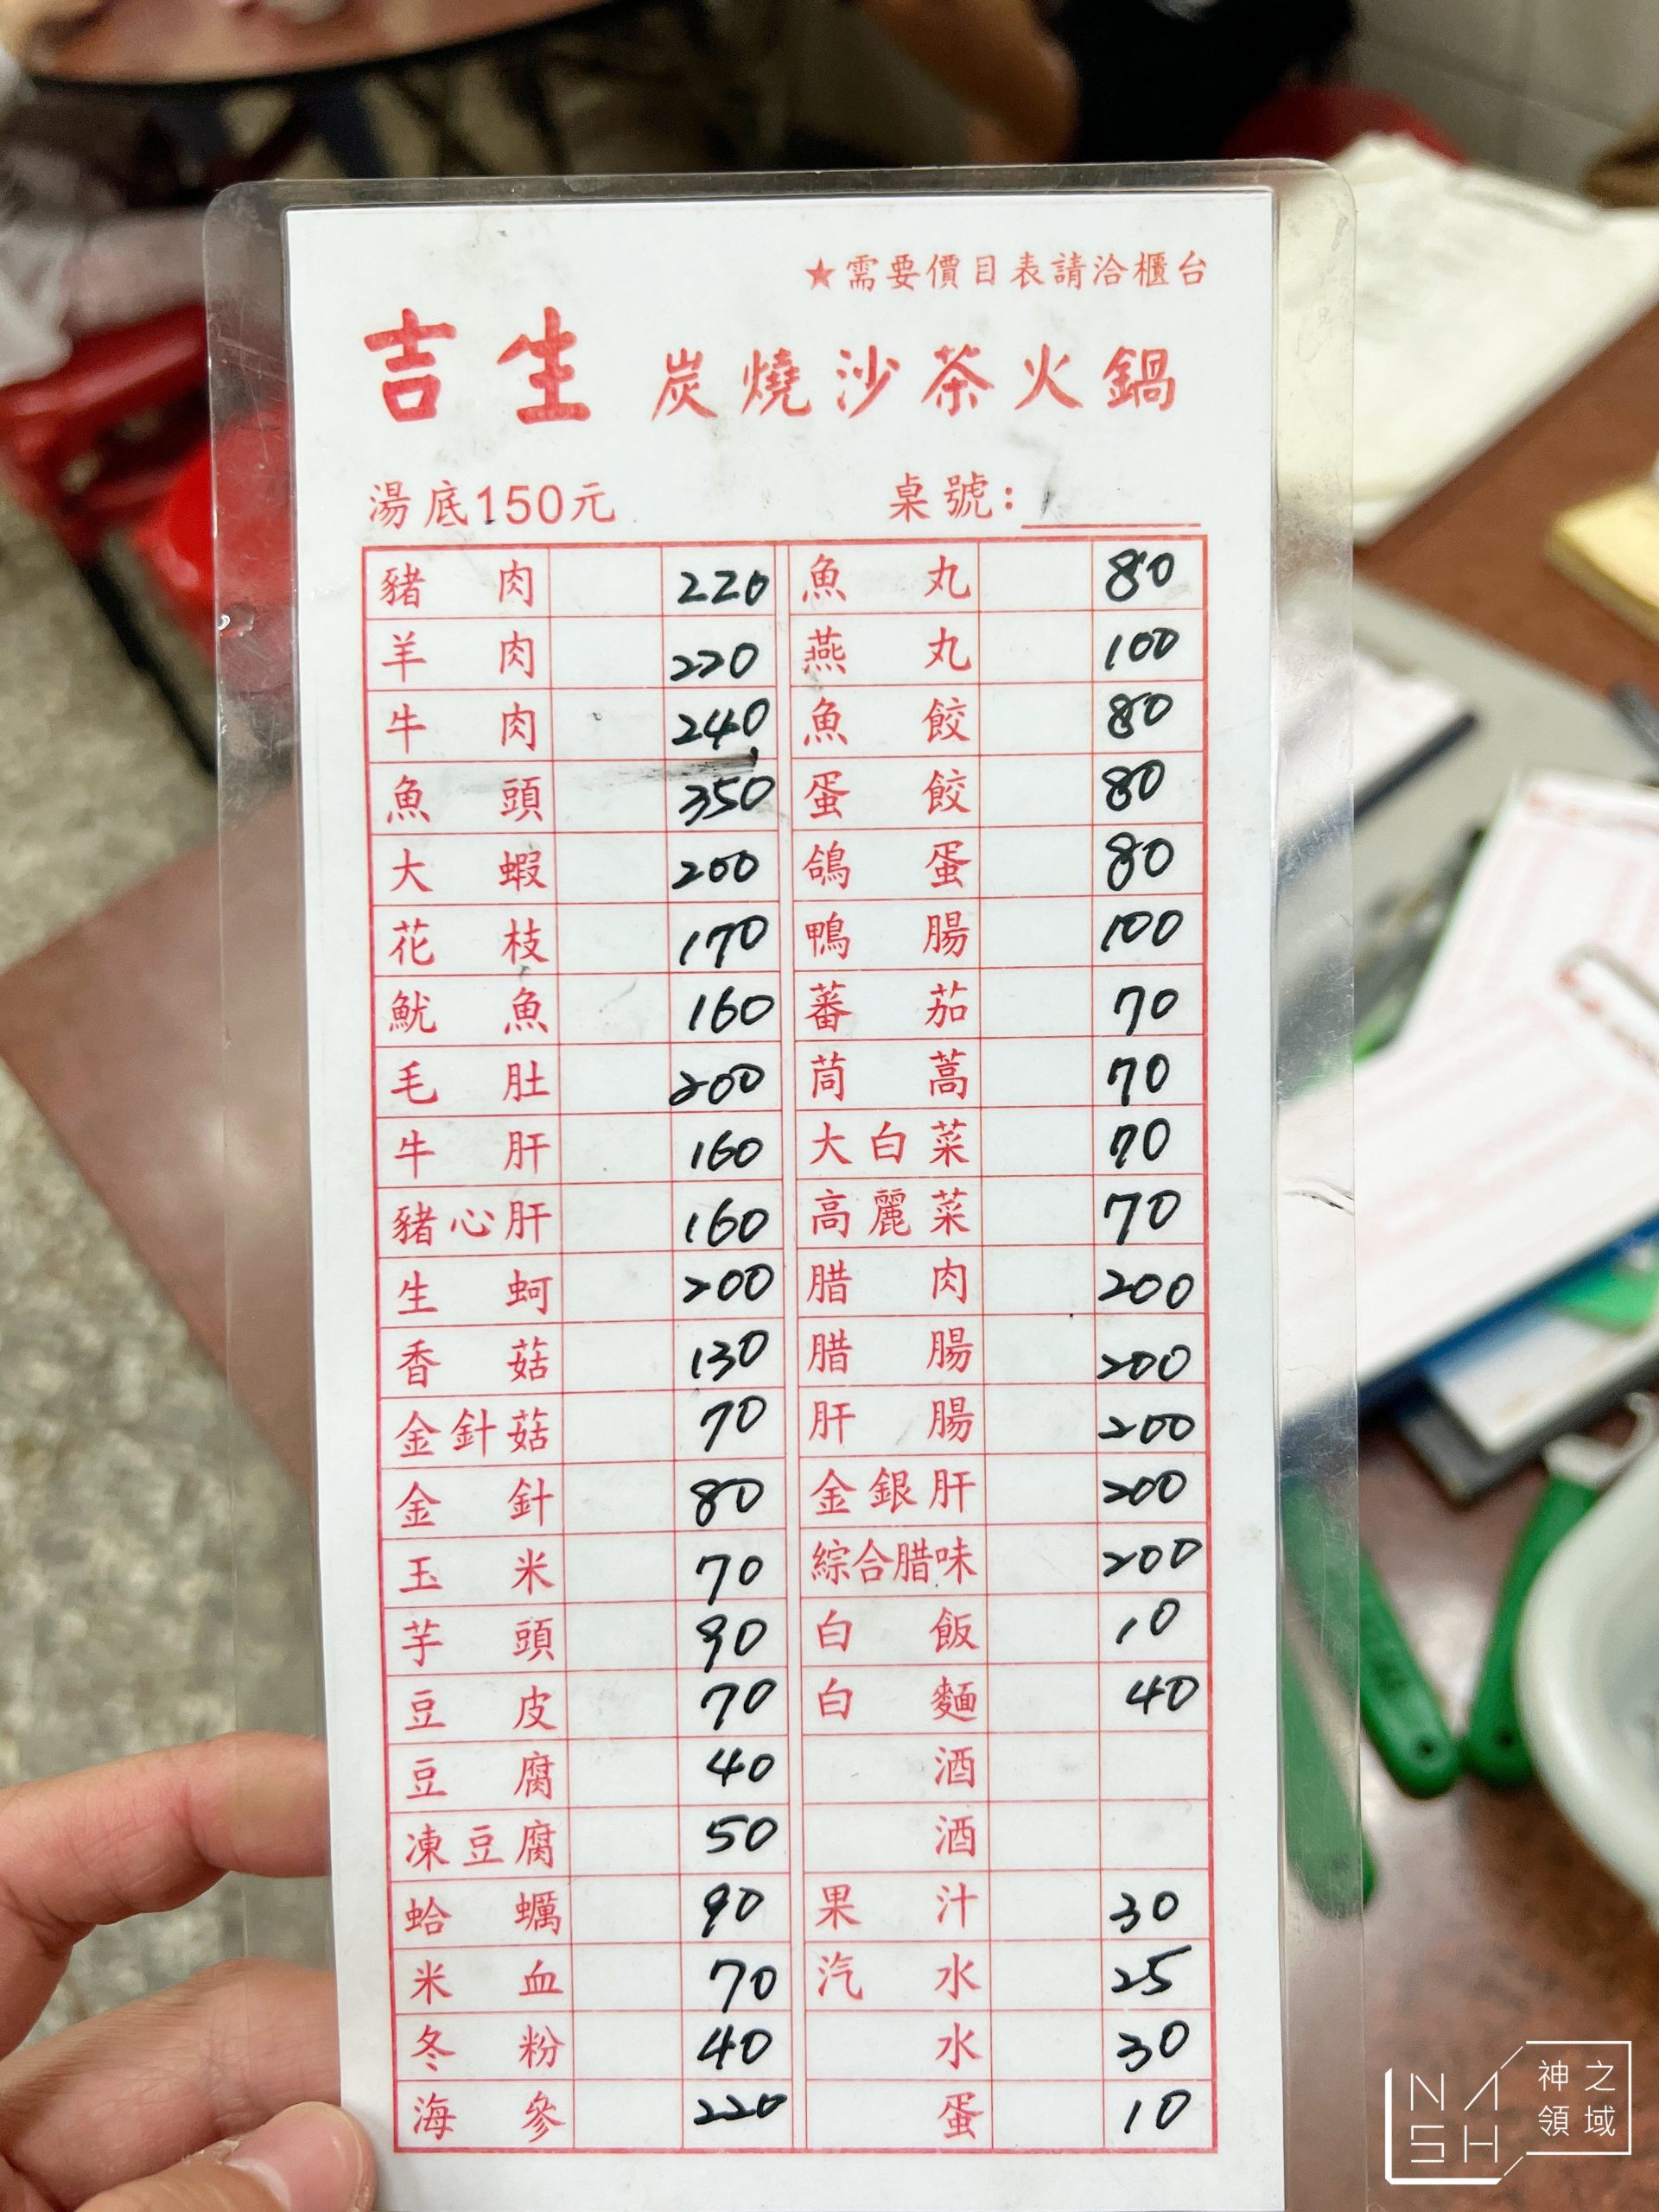 ★需要價目表請洽櫃台
吉生 炭燒沙茶火鍋
湯底150元 桌號:
豬肉 220 魚丸 80
羊肉 220 燕丸 100
牛肉 240 魚餃 80
魚頭 350 蛋餃 80
大蝦 200 鴿蛋 80
花枝 170 鴨腸 100
魷魚 160 蕃茄 70
毛肚 200 茼蒿 70
牛肝 160 大白菜 70
豬心肝 160 高麗菜 70
生蚵 200 腊肉 200
香菇 130 腊腸 200
金針菇 70 肝腸 200
金針 80 金銀肝 200
玉米 70 綜合腊味 200
芋頭 90 白飯 10
豆皮 70 白麵 40
豆腐 40 酒
凍豆腐 50 酒
蛤蠣 90 果汁 30
米血 70 汽水 25
冬粉 40 水 30
海參 220 蛋 10
NASH 神之領域